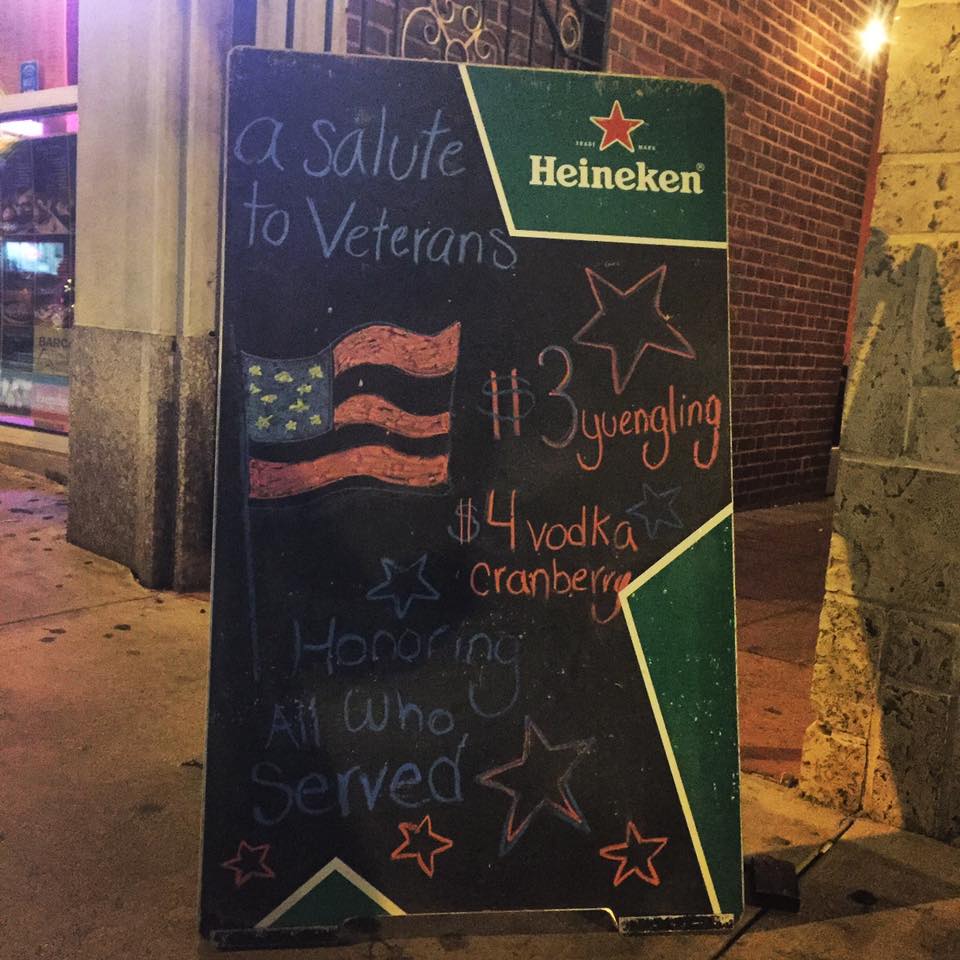 a salute
to Veterans
TRADE MARK
Heineken®
$3 yuengling
$4 vodka
cranberry
Honoring
All Who
Served
BARC